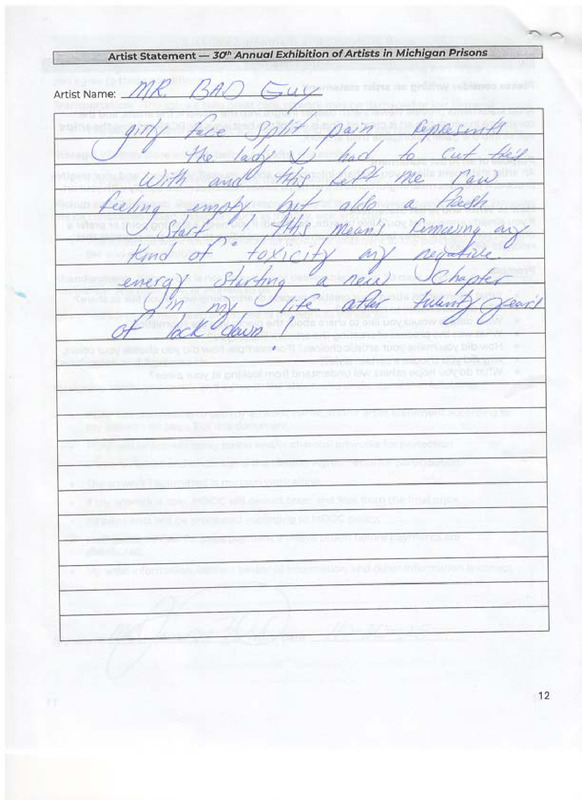 Artist Statement — 30th Annual Exhibition of Artists in Michigan Prisons
Artist Name: MR. BAD GUY
girly face split pain represents
the lady I had to cut ties
with and this left me raw
feeling empty but also a fresh
start! this means removing any
kind of toxicity any negative
energy starting a new chapter
in my life after twenty years
of lock down!
12